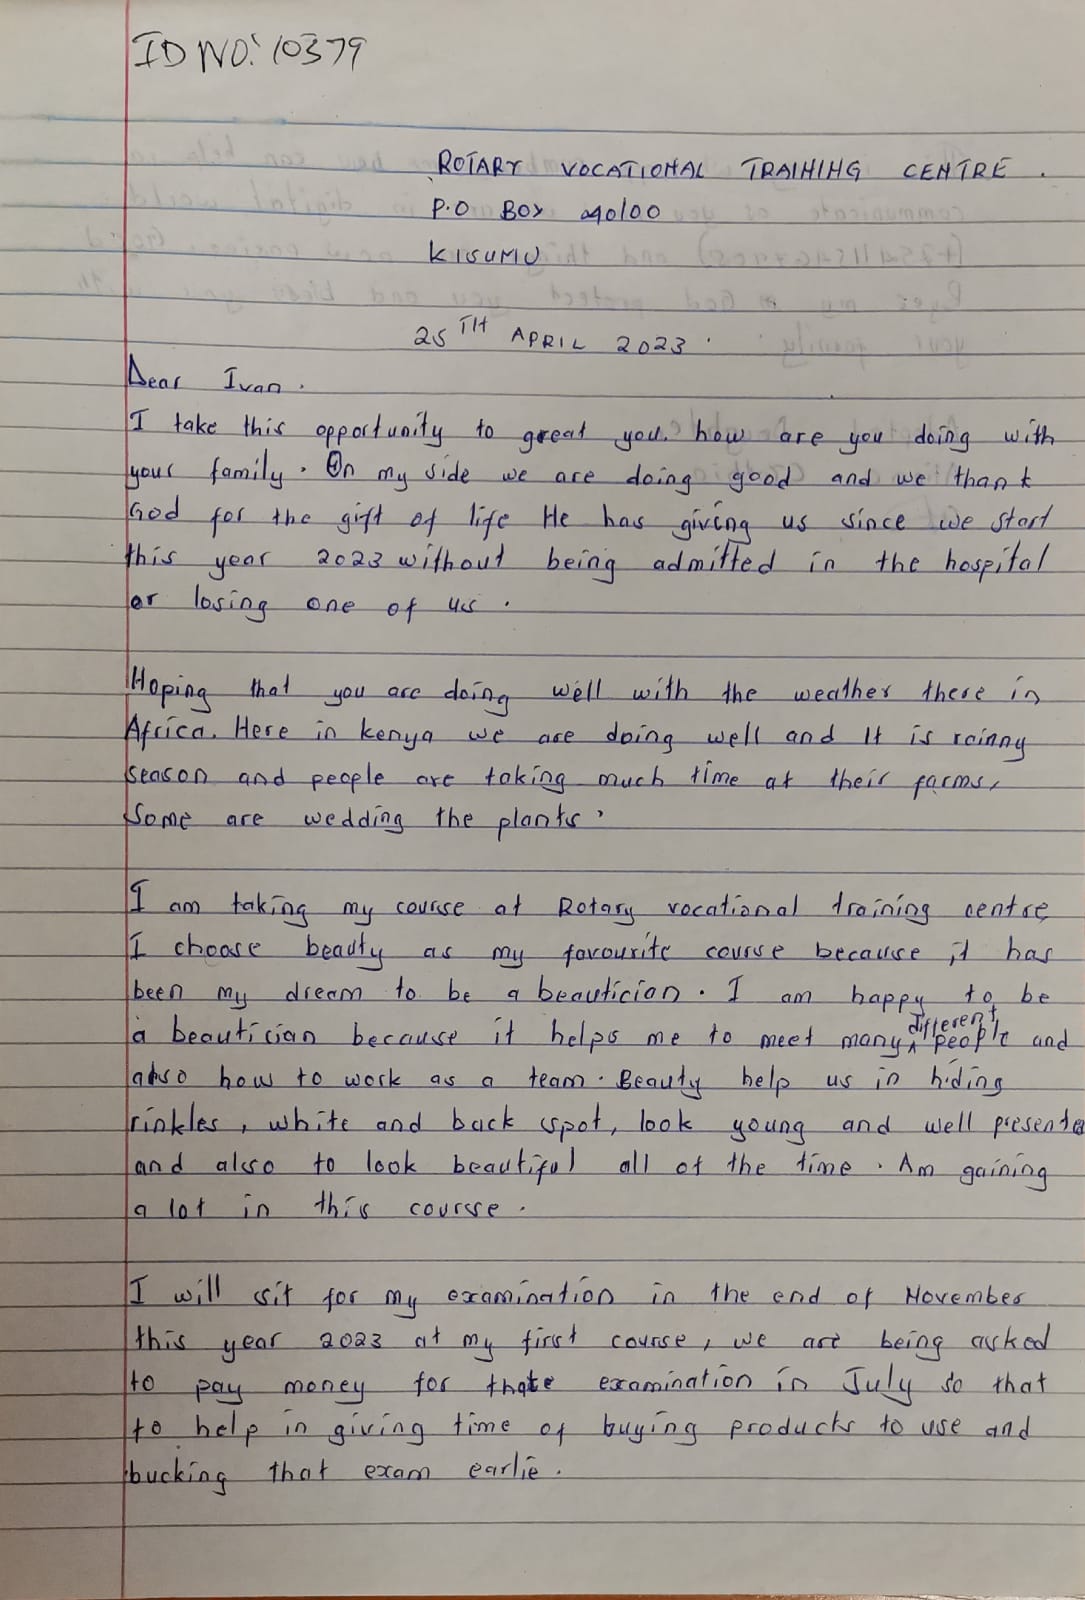 ID NO: 10379
ROTARY VOCATIONAL TRAINING CENTRE.
P.O BOX 40100
KISUMU
25TH APRIL 2023.
Dear Ivan.
I take this opportunity to great you. how are you doing with
your family. On my side we are doing good and we thank
God for the gift of life He has giving us since we start
this year 2023 without being admitted in the hospital
or losing one of us.
Hoping that you are doing well with the weather there in
Africa. Here in kenya we are doing well and It is rainny
season and people are taking much time at their farms,
Some are wedding the plants.
I am taking my course at Rotary vocational training centre
I choose beauty as my favourite course because it has
been my dream to be a beautician. I am happy to be
a beautician because it helps me to meet many different people and
also how to work as a team. Beauty help us in hiding
rinkles, white and back spot, look young and well presente
and also to look beautiful all of the time. Am gaining
a lot in this course.
I will sit for my examination in the end of November
this year 2023 at my first course, we are being asked
to pay money for examination in July so that
to help in giving time of buying products to use and
bucking that exam earlie.